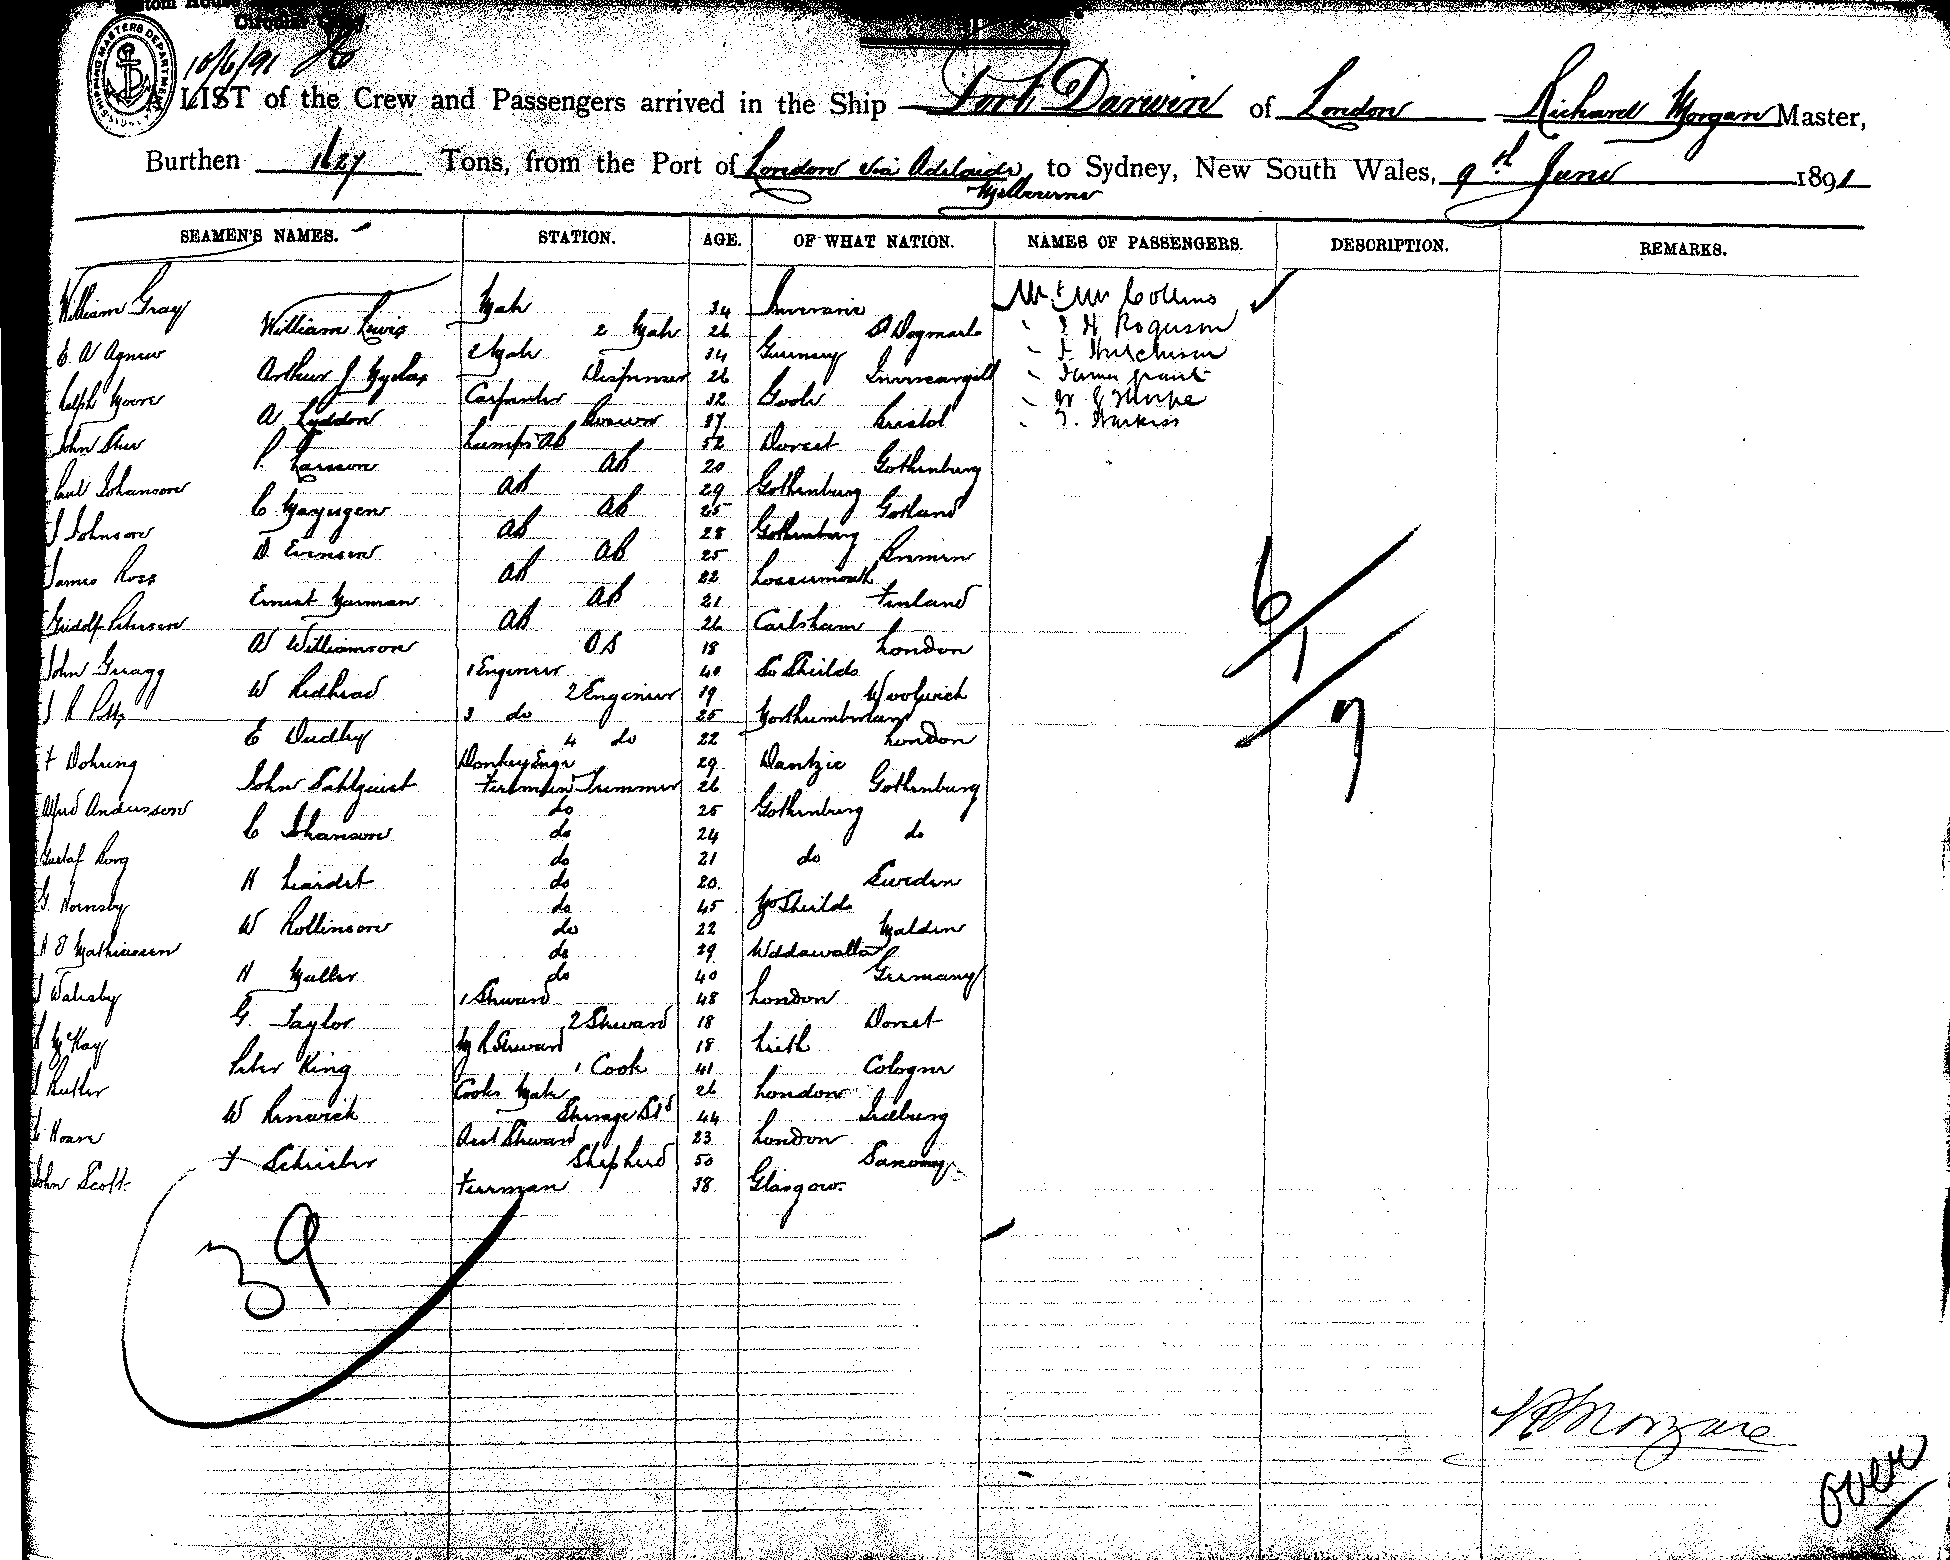 Circular
SHIPPING MASTERS DEPARTMENT
10/6/91
A LIST of the Crew and Passengers arrived in the Ship Port Darwin of London Richard Morgan Master,
Burthen 1627 Tons, from the Port of London via Adelaide, to Sydney, New South Wales, 9th June 1891
Melbourne
SEAMEN'S NAMES. STATION. AGE. OF WHAT NATION. NAMES OF PASSENGERS. DESCRIPTION. REMARKS.
William Gray Mate 34 Mr & Mrs Collins
William Lewis 2 Mate 26 St Dogmaels
E W Agnew 2 Mate 34 Guernsey Hutchison
Arthur J Dispenser 26 Invercargill James Grant
Ralph Moore Carpenter 32 Goole W G Thorpe
A Lyddon Boswn 37 Bristol
John Lamps AB 52 Dorset
P. Larsson AB 20 Gothenburg
Paul Johanson AB 29 Gothenburg
C AB 25 Gotland
J Johnson AB 28 Gothenburg
D Evensen AB 25
James Ross AB 22 Lossiemouth
Ernest AB 21 Finland
Petersen AB 26 Carlsham
W Williamson OS 18 London
John Gragg 1 Engineer 40 So Sheilds
W Redhead 2 Engineer 19 Woolwich
J R Potts 3 do 25 Northumberland
E Dudley 4 do 22 London
F Dohring Donkey Engr 29 Dantzic
John Dahlquist Fireman Trimmer 26 Gothenburg
Alfred Andersson do 25 Gothenburg
C Johanson do 24 do
Gustaf Rong do 21 do
H Liardet do 20 Sweden
G. Hornsby do 45 No Sheilds
W Rollinson do 22 Maldon
H O Mathiasen do 39 Uddawalla
H Muller do 40 Germany
J Walesby 1 Steward 48 London
G. Taylor 2 Steward 18 Dorset
McKay M R Steward 18 Leith
Peter King 1 Cook 41 Cologne
J Butler Cooks Mate 26 London
W Renwick Steerage Std 44
C Hoare Asst Steward 23 London
F Schuster Shepherd 50 Saxony
John Scott Fireman 38 Glasgow
6
1
7
39
R Morgan
over